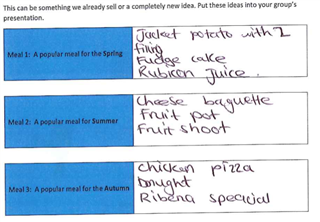 This can be something we already sell or a completely new idea. Put these ideas into your group's
presentation.
Meal 1: A popular meal for the Spring
Jacket potato with 1
filling
Fudge cake
Rubicon Juice.
Meal 2: A popular meal for Summer
Cheese baguette
Fruit pot
Fruit shoot
Meal 3: A popular meal for the Autumn
Chicken pizza
Dought
Ribena specicial